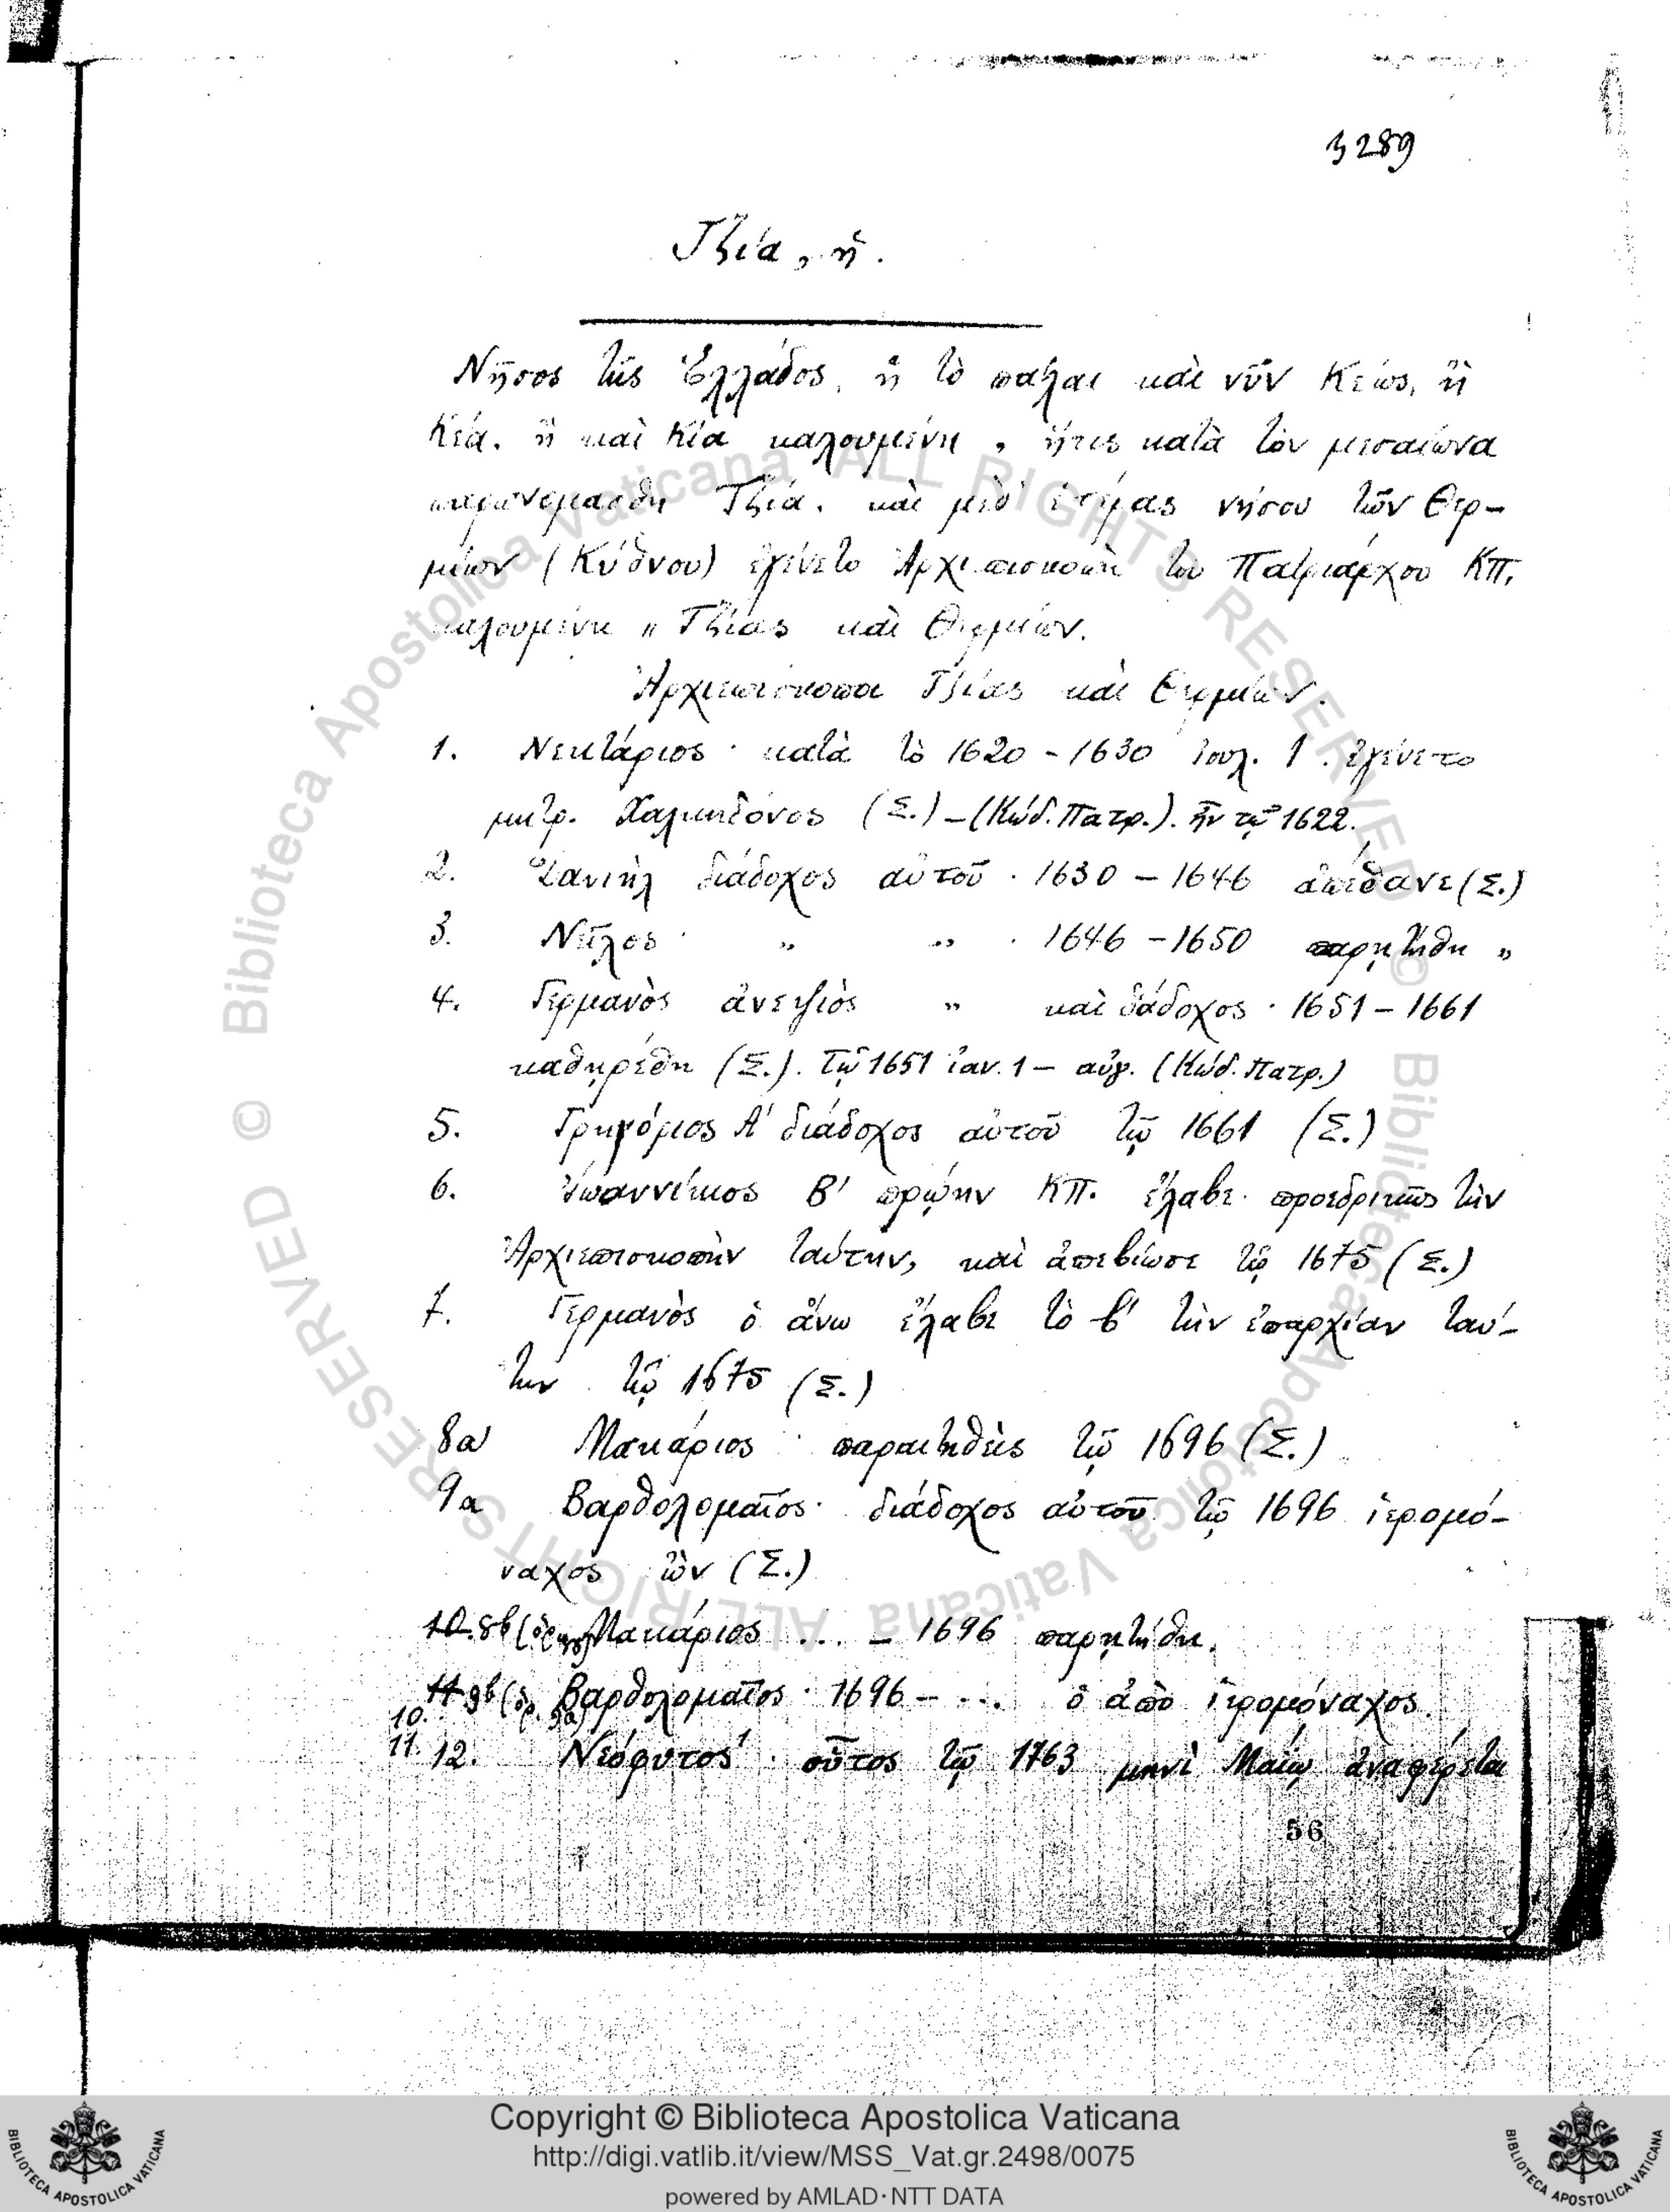 3289
Τζία, ἡ.
Νῆσος τῆς Ἑλλάδος, ἡ τὸ πάλαι καὶ νῦν Κέως, ἢ
Κέα, ἢ καὶ Κία καλουμένη, ἥτις κατὰ τὸν μεσαίωνα
παρωνομάσθη Τζία, καὶ μεθ' ἑτέρας νήσου τῶν Θερ-
μίων (Κύθνου) ἐγένετο Ἀρχιεπισκοπὴ τοῦ Πατριάρχου ΚΠ,
καλουμένη „ Τζίας καὶ Θερμίων.
Ἀρχιεπίσκοποι Τζίας καὶ Θερμίων.
1. Νεκτάριος · κατὰ τὸ 1620 - 1630 Ἰουλ. 1. ἐγένετο
μητρ. Χαλκηδόνος (Σ.) - (Κώδ. Πατρ.). ἦν τῷ 1622.
2. Δανιὴλ διάδοχος αὐτοῦ · 1630 - 1646 ἀπέθανε (Σ.)
3. Νεῖλος · „ „ · 1646 - 1650 παρῃτήθη „
4. Γερμανὸς ἀνεψιὸς „ καὶ διάδοχος · 1651 - 1661
καθῃρέθη (Σ.). Τῷ 1651 ἰαν. 1 - αὐγ. (Κώδ. Πατρ.)
5. Γρηγόριος Α' διάδοχος αὐτοῦ τῷ 1661 (Σ.)
6. Ἰωαννίκιος Β' πρῴην ΚΠ. ἔλαβε προεδρικῶς τὴν
Ἀρχιεπισκοπὴν ταύτην, καὶ ἀπεβίωσε τῷ 1675 (Σ.)
7. Γερμανὸς ὁ ἄνω ἔλαβε τὸ β' τὴν ἐπαρχίαν ταύ-
την τῷ 1675 (Σ.)
8a) Μακάριος · παραιτηθεὶς τῷ 1696 (Σ.)
9a Βαρθολομαῖος · διάδοχος αὐτοῦ τῷ 1696 ἱερομό-
ναχος ὢν (Σ.)
10. 8b Μακάριος ... - 1696 παρῃτήθη.
11 9b (ὁρ. 9a) Βαρθολομαῖος · 1696 - ... ὁ ἀπὸ ἱερομόναχος.
10.
11. 12. Νεόφυτος · οὗτος τῷ 1763 μηνὶ Μαίῳ ἀναφέρεται
56
© Biblioteca Apostolica Vaticana ALL RIGHTS RESERVED © Biblioteca Apostolica Vaticana ALL RIGHTS RESERVED
Copyright © Biblioteca Apostolica Vaticana
http://digi.vatlib.it/view/MSS_Vat.gr.2498/0075
powered by AMLAD·NTT DATA
BIBLIOTECA APOSTOLICA VATICANA
BIBLIOTECA APOSTOLICA VATICANA